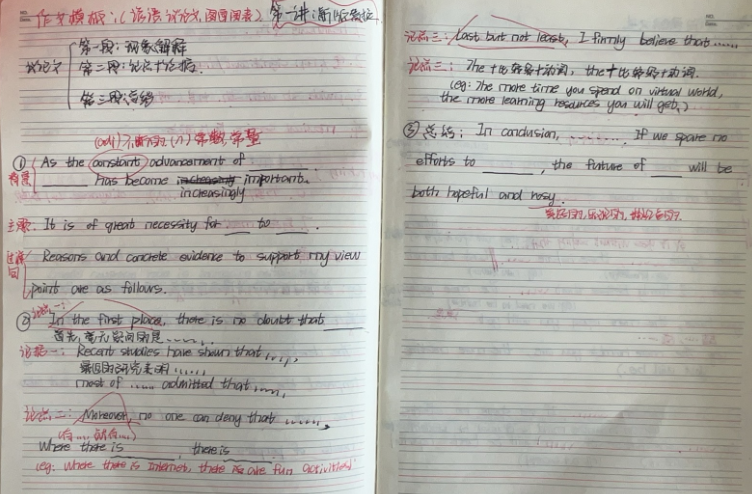 作文模板:(谚语议论文,图画图表)
第一讲:
议论文
第一段: 现象解释
第二段: 论点+论据.
第三段: 总结
(adj)不断的, (n)常数,常量
① As the constant advancement of
背景 ____ has become increasingly important.
increasingly
主题: It is of great necessity for ___ to ___.
Reasons and concrete evidence to support my view
point are as follows.
论点一:
② In the first place, there is no doubt that ____
首先,毫无疑问的是......
论据一: Recent studies have shown that ....,
最近的研究表明......
most of ..... admitted that ....,
论点二: Moreover, no one can deny that ......,
(有.....就有....)
Where there is ____, there is ____.
(eg: Where there is Internet, there is are fun activities)
论点三: Last but not least, I firmly believe that......
论据三: The+比较级+动词, the+比较级+动词.
(eg: The more time you spend on virtual world,
the more learning resources you will get.)
③ 总结: In conclusion, ........ If we spare no
efforts to ____, the future of ___ will be
both hopeful and rosy.